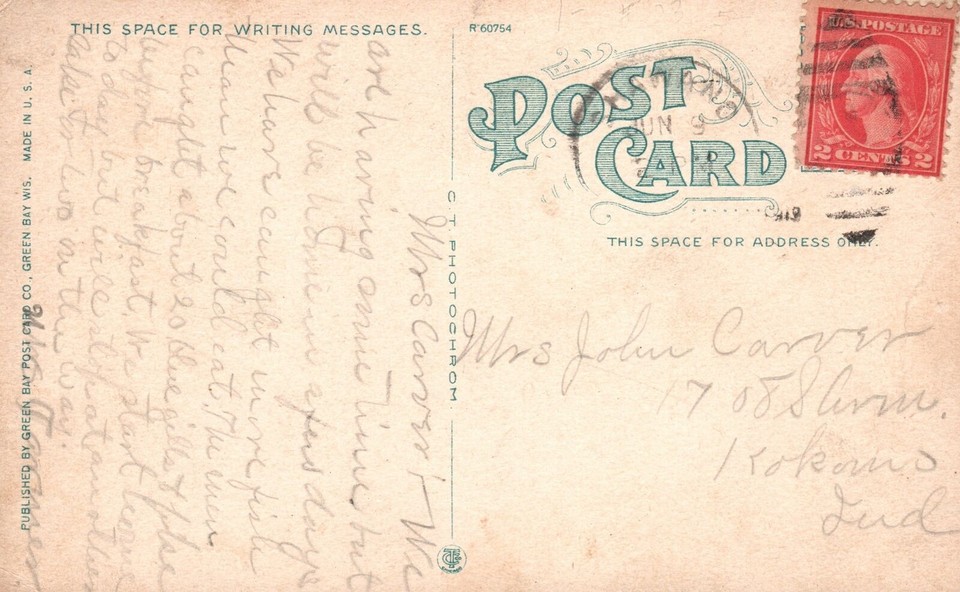 THIS SPACE FOR WRITING MESSAGES.
R-60754
POST CARD
U.S. POSTAGE
2 CENTS 2
JUN 9
THIS SPACE FOR ADDRESS ONLY.
Mrs John Carver
1708 S
Kokomo
Ind
Mrs Carver + We
are having a time but
will be home in a days
We have caught more fish
than we could eat. The men
caught about 20 blue gills
before breakfast. We start
to day but will stop at another
lake on the way.
C T PHOTOCHROM
PUBLISHED BY GREEN BAY POST CARD CO., GREEN BAY WIS. MADE IN U. S. A.